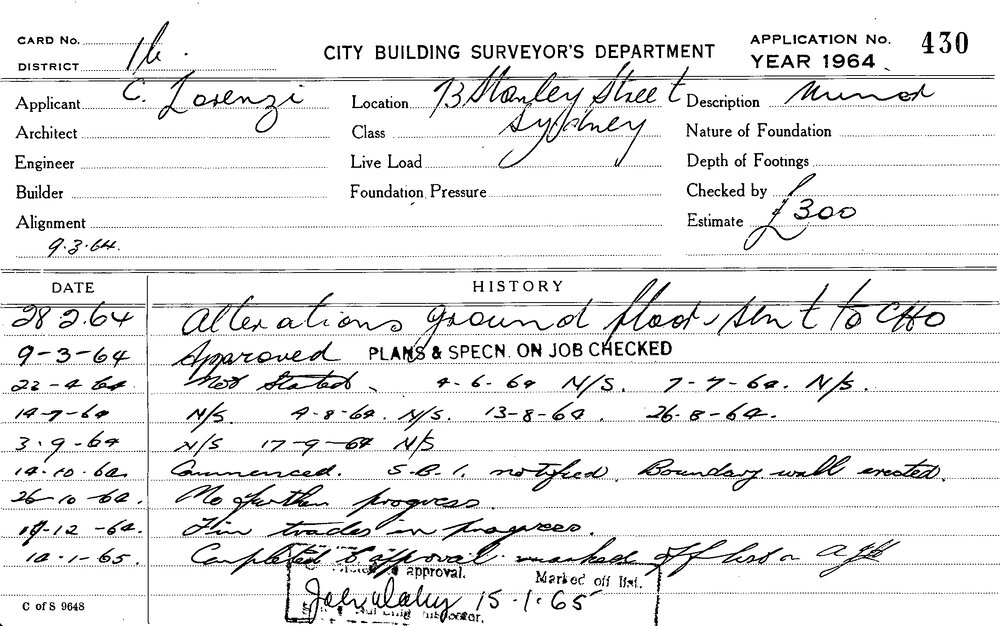 CARD No.
DISTRICT 16.
CITY BUILDING SURVEYOR'S DEPARTMENT
APPLICATION No. 430
YEAR 1964
Applicant C. Lorenzi
Location 73 Stanley Street Sydney
Description Minor
Architect
Class
Nature of Foundation
Engineer
Live Load
Depth of Footings
Builder
Foundation Pressure
Checked by
Alignment
Estimate £300
9.3.64.
DATE HISTORY
28 2.64 Alterations ground floor, sent to CHO
9-3-64 Approved PLANS & SPECN. ON JOB CHECKED
22-4-64 Not Started - 4-6-64 N/S. 7-7-64. N/S.
14-7-64 N/S. 4-8-64. N/S. 13-8-64. 26-8-64.
3-9-64 N/S 17-9-64 N/S
14-10-64. Commenced. S.B.I. notified. Boundary wall erected.
26-10-64. No further progress.
14-12-64. Fin trades in progress.
14-1-65. Completed to approval marked off list
approval. Marked off list.
15.1.65
C of S 9648